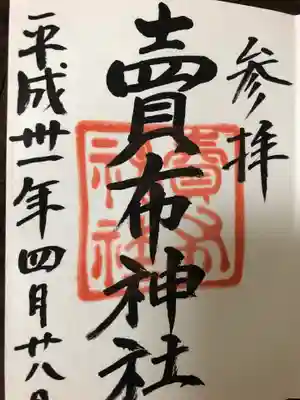 参拝
賣布神社
平成卅一年四月廿八日
賣布
神社